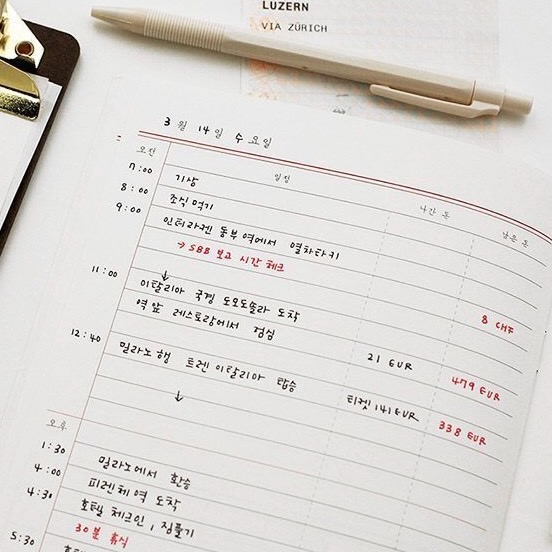 LUZERN
VIA ZÜRICH
3월 14일 수요일
오전 일정 나간 돈 남은 돈
7:00 기상
8:00 조식 먹기
9:00 인터라켄 동부역에서 열차타기
→ SBB 보고 시간 체크 8 CHF
↓
11:00 이탈리아 국경 도모도솔라 도착
역 앞 레스토랑에서 점심 21 EUR 479 EUR
12:40 밀라노행 트렌이탈리아 탑승 티켓 141 EUR 338 EUR
↓
오후
1:30 밀라노에서 환승
4:00 피렌체역 도착
4:30 호텔 체크인, 짐풀기
30분 휴식
5:30